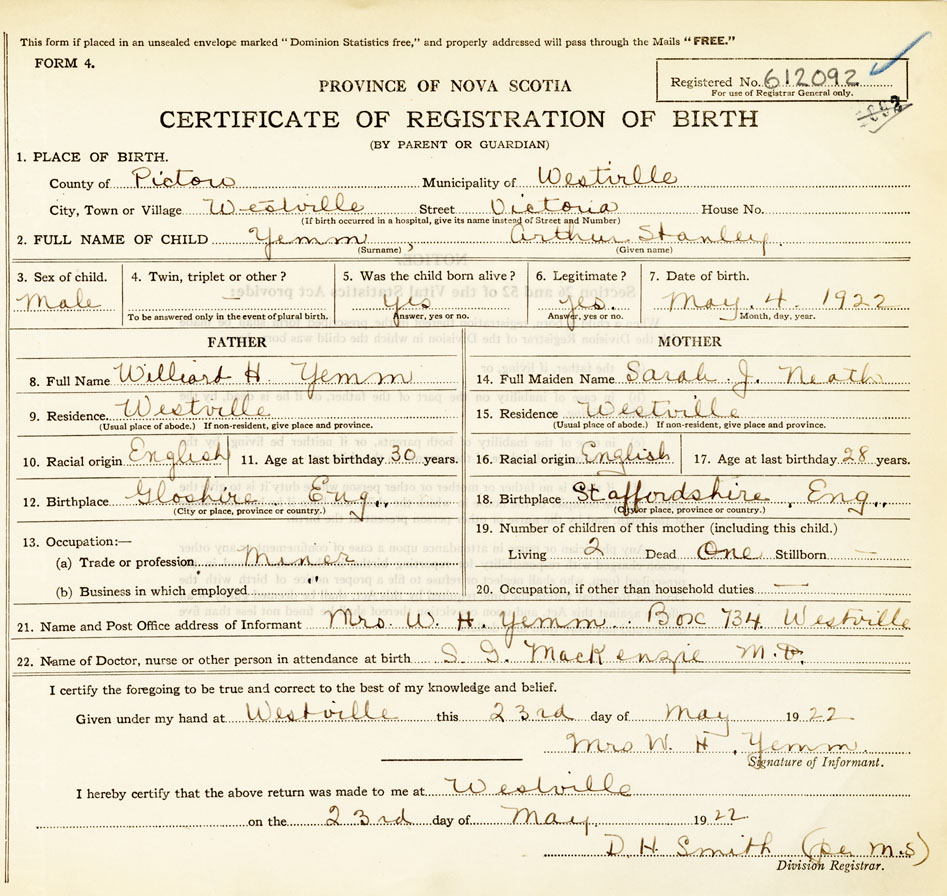 This form if placed in an unsealed envelope marked "Dominion Statistics free," and properly addressed will pass through the Mails "FREE."
FORM 4.
Registered No. 612092
For use of Registrar General only.
PROVINCE OF NOVA SCOTIA
CERTIFICATE OF REGISTRATION OF BIRTH
(BY PARENT OR GUARDIAN)
1. PLACE OF BIRTH.
County of Pictou Municipality of Westville
City, Town or Village Westville Street Victoria House No.
(If birth occurred in a hospital, give its name instead of Street and Number)
2. FULL NAME OF CHILD Yemm, Arthur Stanley.
(Surname) (Given name)
3. Sex of child. 4. Twin, triplet or other? 5. Was the child born alive? 6. Legitimate? 7. Date of birth.
Male — Yes Yes. May. 4. 1922
To be answered only in the event of plural birth. Answer, yes or no. Answer, yes or no. Month, day, year.
FATHER MOTHER
8. Full Name Williard H. Yemm 14. Full Maiden Name Sarah J. Neath
9. Residence. Westville 15. Residence Westville
(Usual place of abode.) If non-resident, give place and province. (Usual place of abode.) If non-resident, give place and province.
10. Racial origin English 11. Age at last birthday 30 years. 16. Racial origin English 17. Age at last birthday 28 years.
12. Birthplace Gloshire Eng., 18. Birthplace Staffordshire Eng.,
(City or place, province or country.) (City or place, province or country.)
19. Number of children of this mother (including this child.)
13. Occupation:—
(a) Trade or profession Miner Living 2 Dead One Stillborn —
(b) Business in which employed " 20. Occupation, if other than household duties —
21. Name and Post Office address of Informant Mrs. W. H. Yemm. Box 734 Westville
22. Name of Doctor, nurse or other person in attendance at birth S. G. MacKenzie M.D.
I certify the foregoing to be true and correct to the best of my knowledge and belief.
Given under my hand at Westville this 23rd day of May 1922
Mrs W. H. Yemm.
Signature of Informant.
I hereby certify that the above return was made to me at Westville
on the 23rd day of May, 1922
D. H. Smith (per M.S)
Division Registrar.